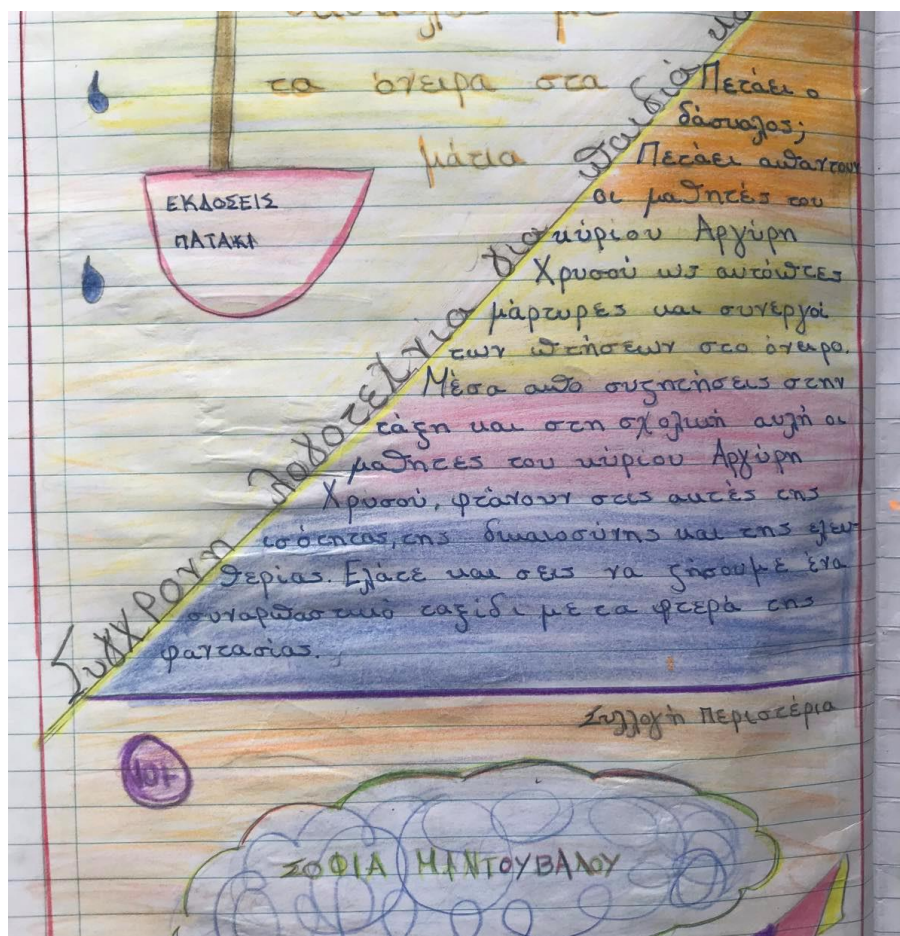 τα όνειρα στα
μάτια
ΕΚΔΟΣΕΙΣ
ΠΑΤΑΚΗ
Σύγχρονη λογοτεχνία για παιδιά
Πετάει ο
δάσκαλος;
Πετάει απαντούν
οι μαθητές του
κύριου Αργύρη
Χρυσού ως αυτόπτες
μάρτυρες και συνεργοί
των πτήσεων στο όνειρο.
Μέσα από συζητήσεις στην
τάξη και στη σχολική αυλή οι
μαθητές του κύριου Αργύρη
Χρυσού, φτάνουν στις ακτές της
ισότητας, της δικαιοσύνης και της ελευ-
θερίας. Ελάτε και σεις να ζήσουμε ένα
συναρπαστικό ταξίδι με τα φτερά της
φαντασίας.
Συλλογή Περιστέρια
10+
ΣΟΦΙΑ ΜΑΝΤΟΥΒΑΛΟΥ